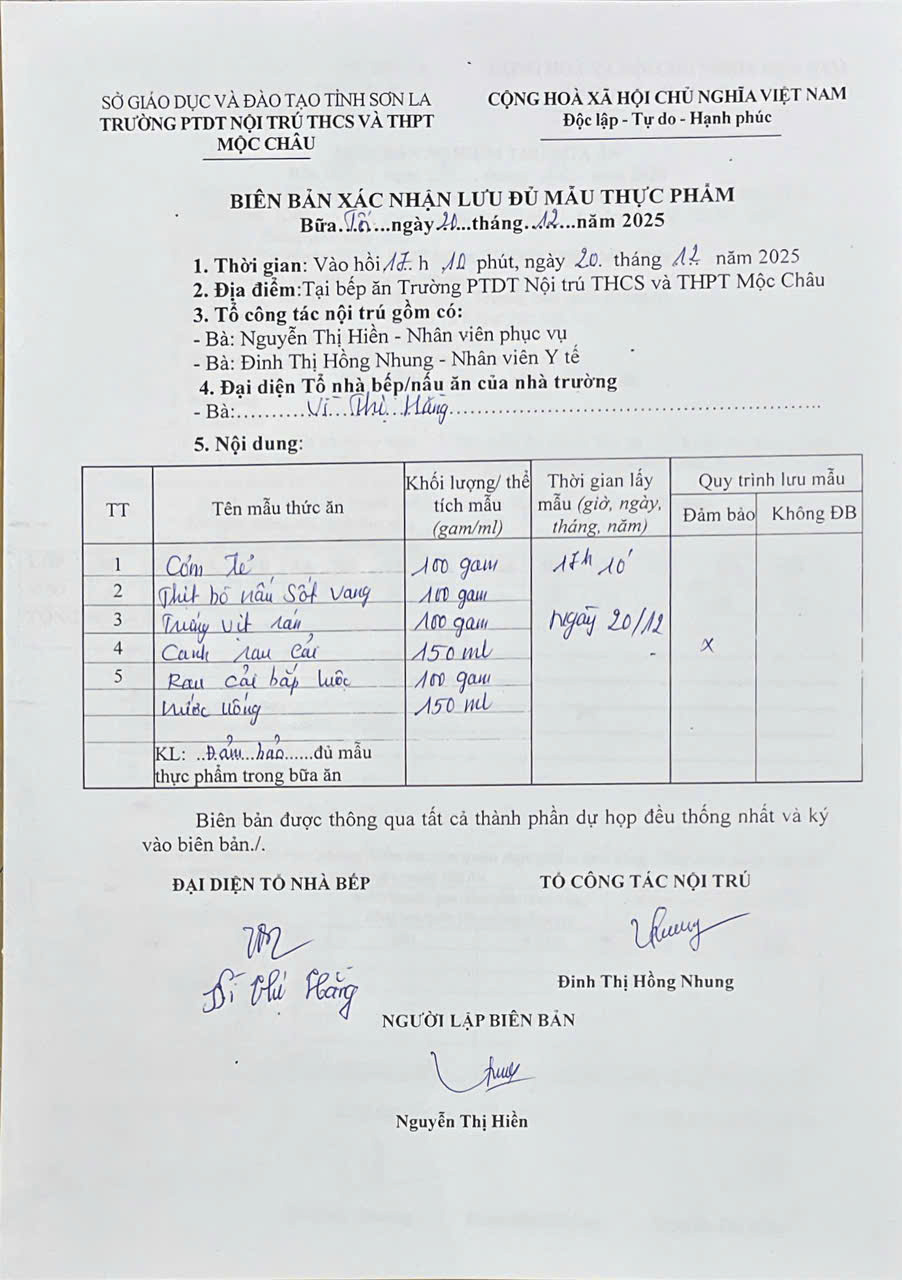 SỞ GIÁO DỤC VÀ ĐÀO TẠO TỈNH SƠN LA
TRƯỜNG PTDT NỘI TRÚ THCS VÀ THPT
MỘC CHÂU
CỘNG HOÀ XÃ HỘI CHỦ NGHĨA VIỆT NAM
Độc lập - Tự do - Hạnh phúc
BIÊN BẢN XÁC NHẬN LƯU ĐỦ MẪU THỰC PHẨM
Bữa.Tối...ngày20...tháng.12...năm 2025
1. Thời gian: Vào hồi 17. h 10 phút, ngày 20. tháng 12 năm 2025
2. Địa điểm:Tại bếp ăn Trường PTDT Nội trú THCS và THPT Mộc Châu
3. Tổ công tác nội trú gồm có:
- Bà: Nguyễn Thị Hiền - Nhân viên phục vụ
- Bà: Đinh Thị Hồng Nhung - Nhân viên Y tế
4. Đại diện Tổ nhà bếp/nấu ăn của nhà trường
- Bà:..........Vì...Thị...Hằng.....................................................
5. Nội dung:
TT Tên mẫu thức ăn Khối lượng/ thể tích mẫu (gam/ml) Thời gian lấy mẫu (giờ, ngày, tháng, năm) Quy trình lưu mẫu Đảm bảo Không ĐB
1 Cơm tẻ 100 gam 17h 10'
2 Thịt bò nấu sốt vang 100 gam
3 Trứng vịt rán 100 gam ngày 20/12
4 Canh rau cải 150 ml x
5 Rau cải bắp luộc 100 gam
Nước uống 150 ml
KL: ..Đảm...bảo......đủ mẫu
thực phẩm trong bữa ăn
Biên bản được thông qua tất cả thành phần dự họp đều thống nhất và ký
vào biên bản./.
ĐẠI DIỆN TỔ NHÀ BẾP
TỔ CÔNG TÁC NỘI TRÚ
Vì Thị Hằng
Đinh Thị Hồng Nhung
NGƯỜI LẬP BIÊN BẢN
Nguyễn Thị Hiền